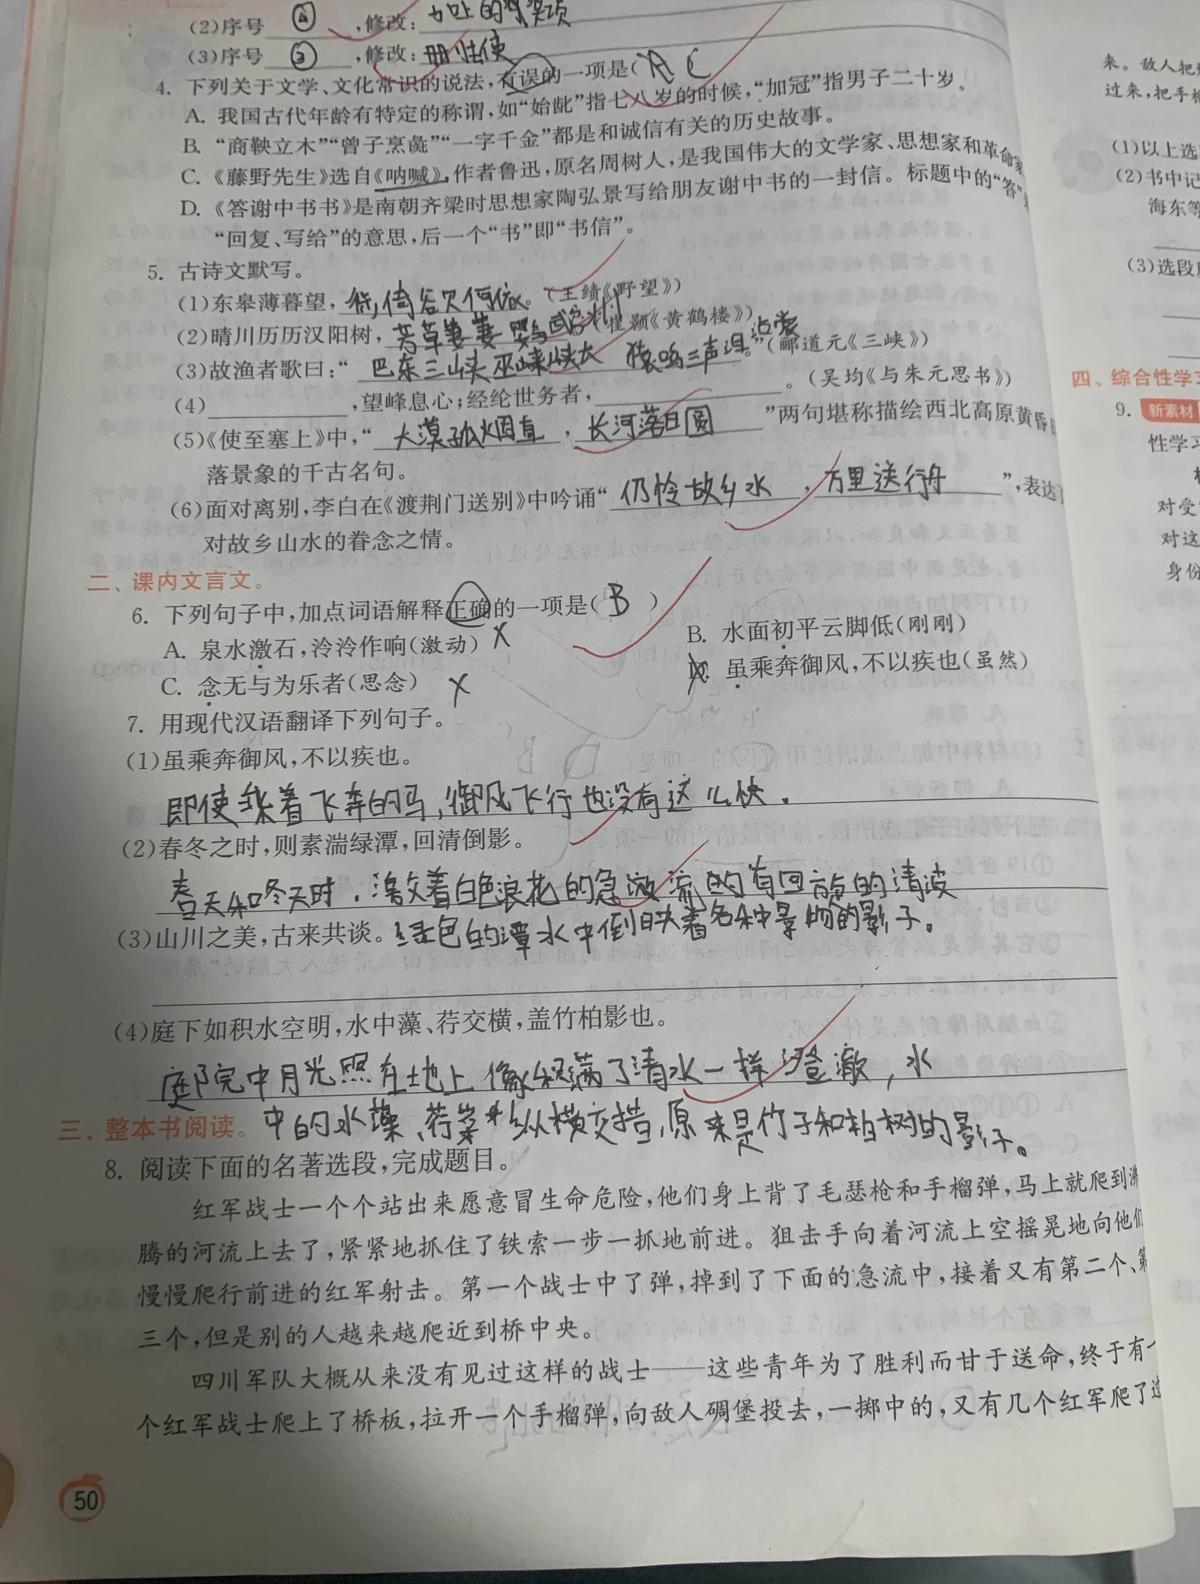 (2)序号 ④ ,修改:
(3)序号 ③ ,修改:
4. 下列关于文学、文化常识的说法,有误的一项是( C
A. 我国古代年龄有特定的称谓,如“始龀”指七八岁的时候,“加冠”指男子二十岁。
B. “商鞅立木”“曾子烹彘”“一字千金”都是和诚信有关的历史故事。
C. 《藤野先生》选自《呐喊》,作者鲁迅,原名周树人,是我国伟大的文学家、思想家和革命家
D. 《答谢中书书》是南朝齐梁时思想家陶弘景写给朋友谢中书的一封信。标题中的“答”
“回复、写给”的意思,后一个“书”即“书信”。
5. 古诗文默写。
(1)东皋薄暮望, 徙倚欲何依。(王绩《野望》)
(2)晴川历历汉阳树, 芳草萋萋鹦鹉洲 崔颢《黄鹤楼》)
(3)故渔者歌曰:“ 巴东三峡巫峡长 猿鸣三声泪沾裳 。”(郦道元《三峡》)
(4) ,望峰息心;经纶世务者, 。(吴均《与朱元思书》)
(5)《使至塞上》中,“ 大漠孤烟直 , 长河落日圆 ”两句堪称描绘西北高原黄昏
落景象的千古名句。
(6)面对离别,李白在《渡荆门送别》中吟诵“ 仍怜故乡水 , 万里送行舟 ”,表达
对故乡山水的眷念之情。
二、课内文言文。
6. 下列句子中,加点词语解释正确的一项是( B )
A. 泉水激石,泠泠作响(激动) X
B. 水面初平云脚低(刚刚)
C. 念无与为乐者(思念) X
D. 虽乘奔御风,不以疾也(虽然)
7. 用现代汉语翻译下列句子。
(1)虽乘奔御风,不以疾也。
即使乘着飞奔的马,御风飞行也没有这么快。
(2)春冬之时,则素湍绿潭,回清倒影。
春天和冬天时,激着白色浪花的急流的有回旋的清波
(3)山川之美,古来共谈。 绿色的潭水中倒映着各种景物的影子。
(4)庭下如积水空明,水中藻、荇交横,盖竹柏影也。
庭院中月光照在地上像积满了清水一样澄澈,水
三、整本书阅读。 中的水藻、荇菜纵横交措,原来是竹子和柏树的影子。
8. 阅读下面的名著选段,完成题目。
红军战士一个个站出来愿意冒生命危险,他们身上背了毛瑟枪和手榴弹,马上就爬到沸
腾的河流上去了,紧紧地抓住了铁索一步一抓地前进。狙击手向着河流上空摇晃地向他们
慢慢爬行前进的红军射击。第一个战士中了弹,掉到了下面的急流中,接着又有第二个、第
三个,但是别的人越来越爬近到桥中央。
四川军队大概从来没有见过这样的战士——这些青年为了胜利而甘于送命,终于有一
个红军战士爬上了桥板,拉开一个手榴弹,向敌人碉堡投去,一掷中的,又有几个红军爬了过
50
来。敌人把
过来,把手榴
(1)以上选
(2)书中记
海东等
(3)选段
四、综合性学习
9. 新素材
性学习
对受
对这
身份